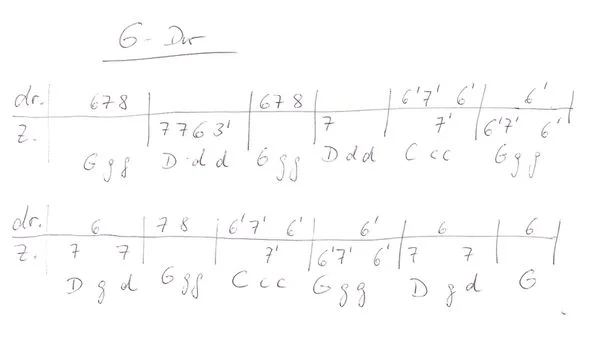 G-Dur
dr. 678 | | 678 | | 6'7' 6' | 6' |
Z. | 7 7 6 3' | | 7 | 7' | 6'7' 6' |
G g g D d d G g g D d d C c c G g g
dr. 6 | 7 8 | 6'7' 6' | 6' | 6 | 6 |
Z. 7 7 | | 7' | 6'7' 6' | 7 7 | |
D g d G g g C c c G g g D g d G